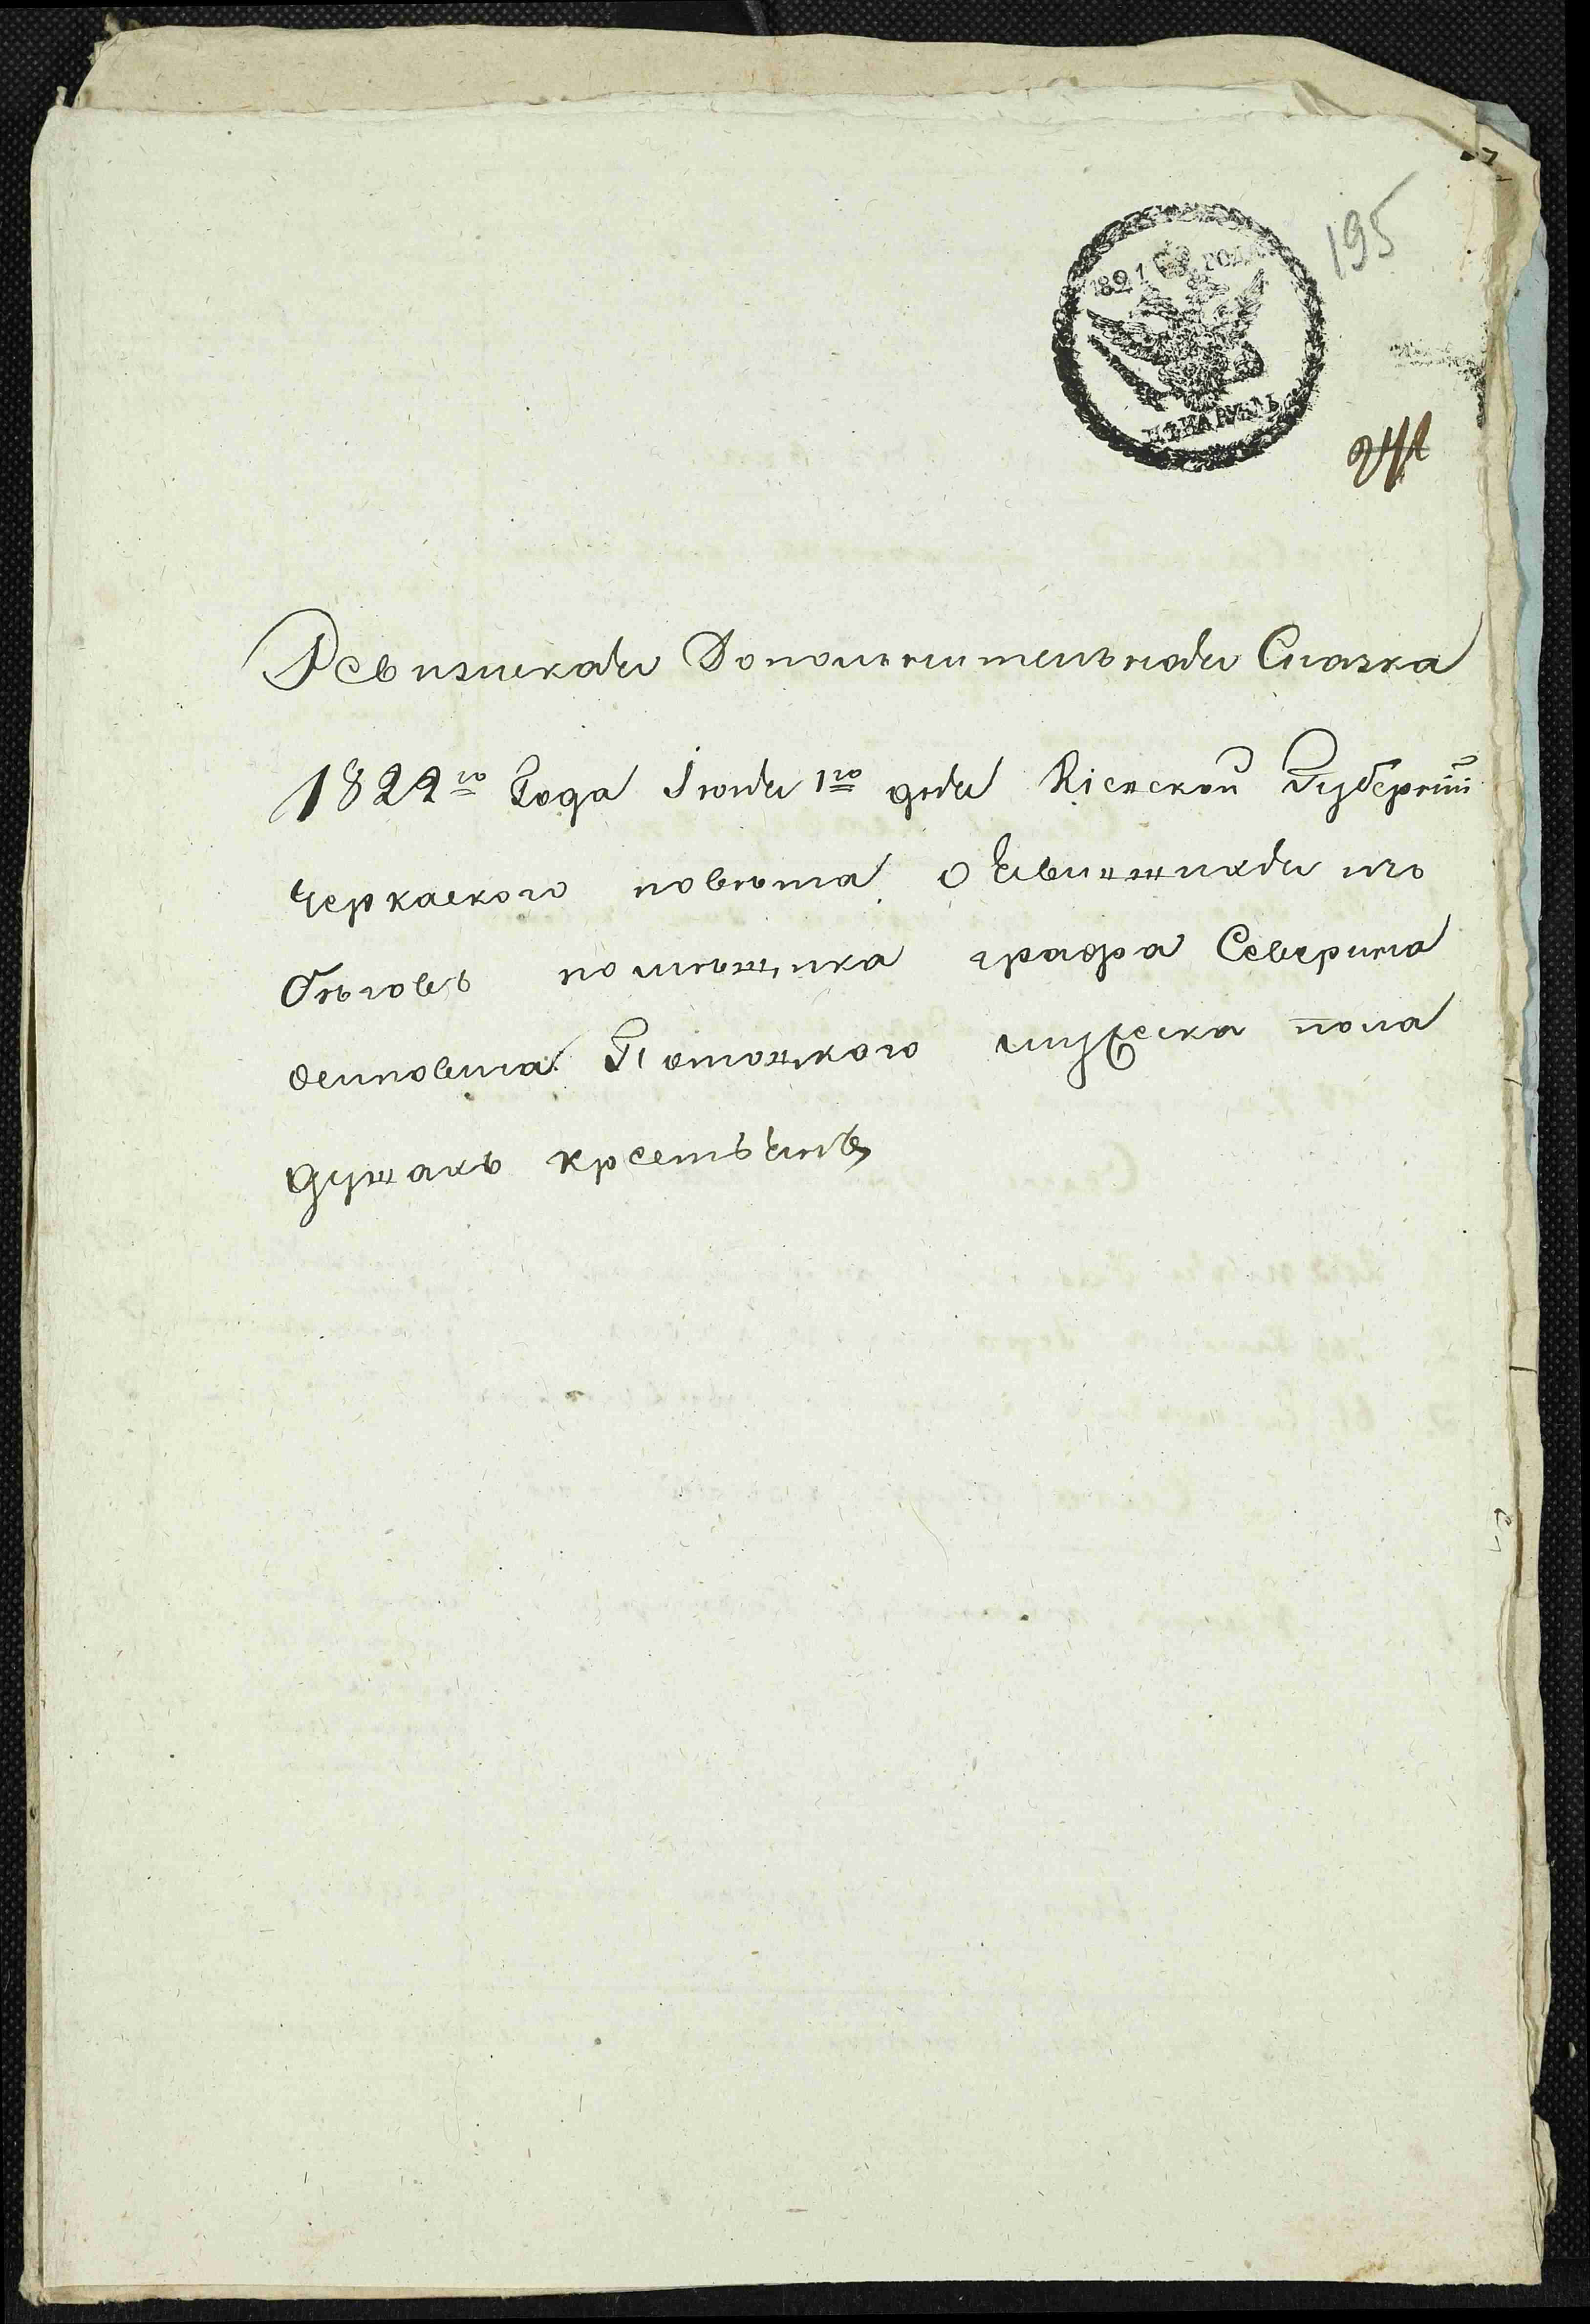 1821 ГОДА
ЦѢНА РУБЛЬ
195
Ревизискадя Дополнительнадя Сказка
1822го Года Іюля 1го дня Кіевской Губерніи
Черкаского повѣта О явившихся изъ
бѣговъ помѣщика графа Северина
осиповича Потоцкого мужеска пола
душахъ крестьянъ